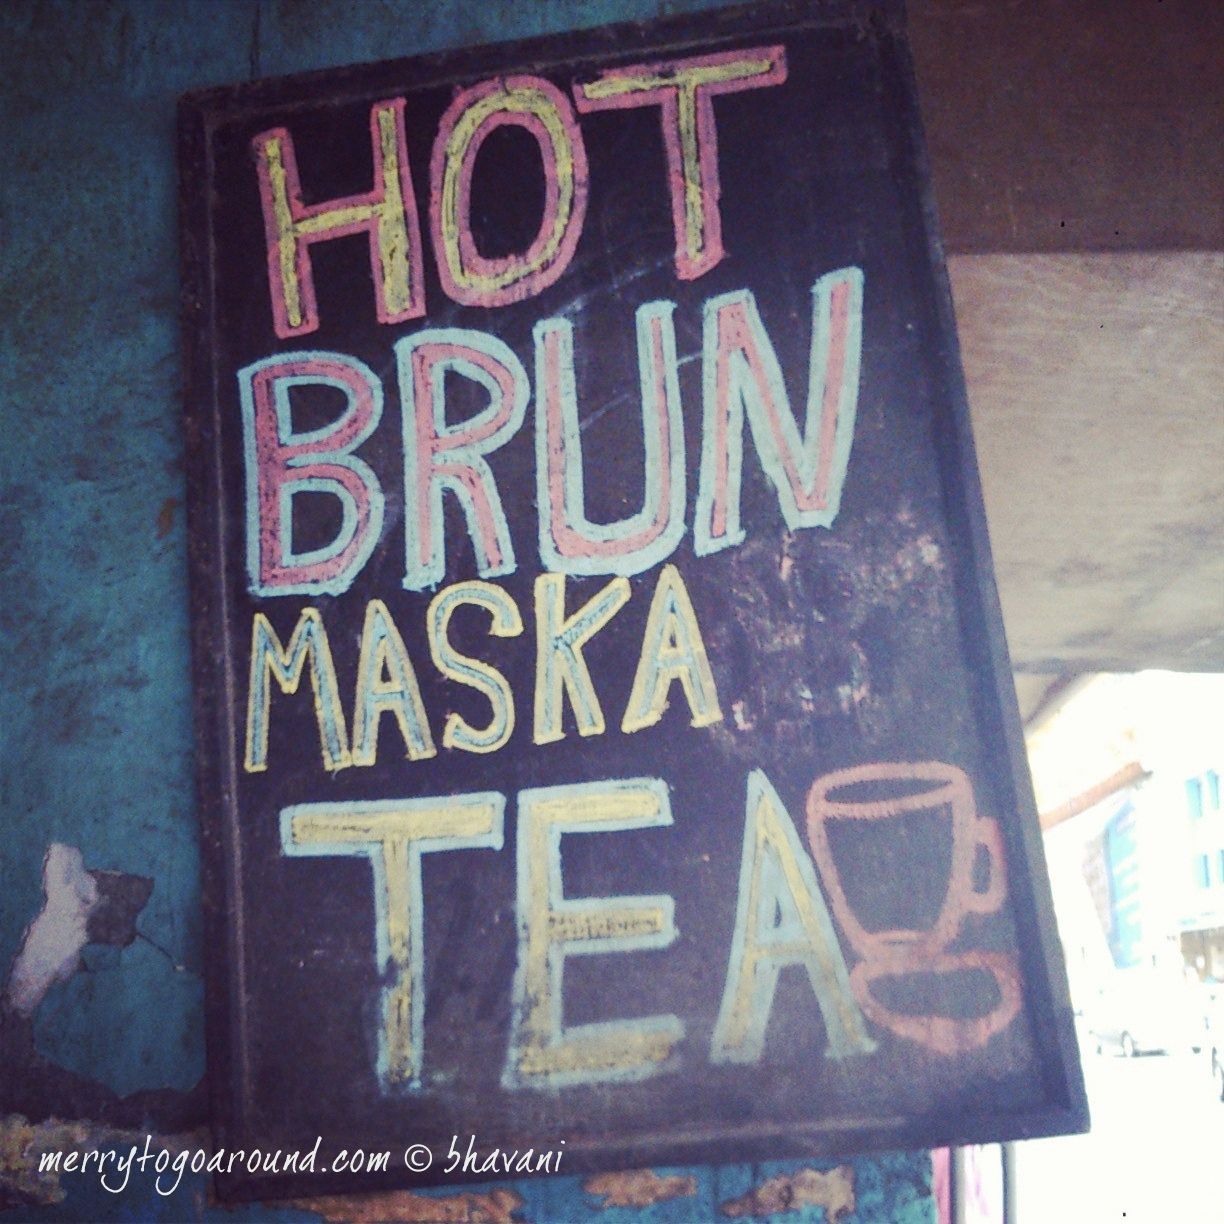 HOT
BRUN
MASKA
TEA
merrytogoaround.com © bhavani